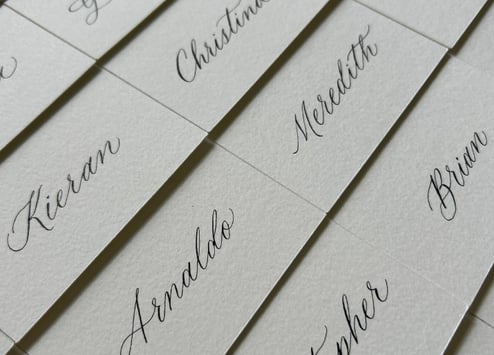 Christina
Meredith
Kieran
Brian
Arnaldo
pher